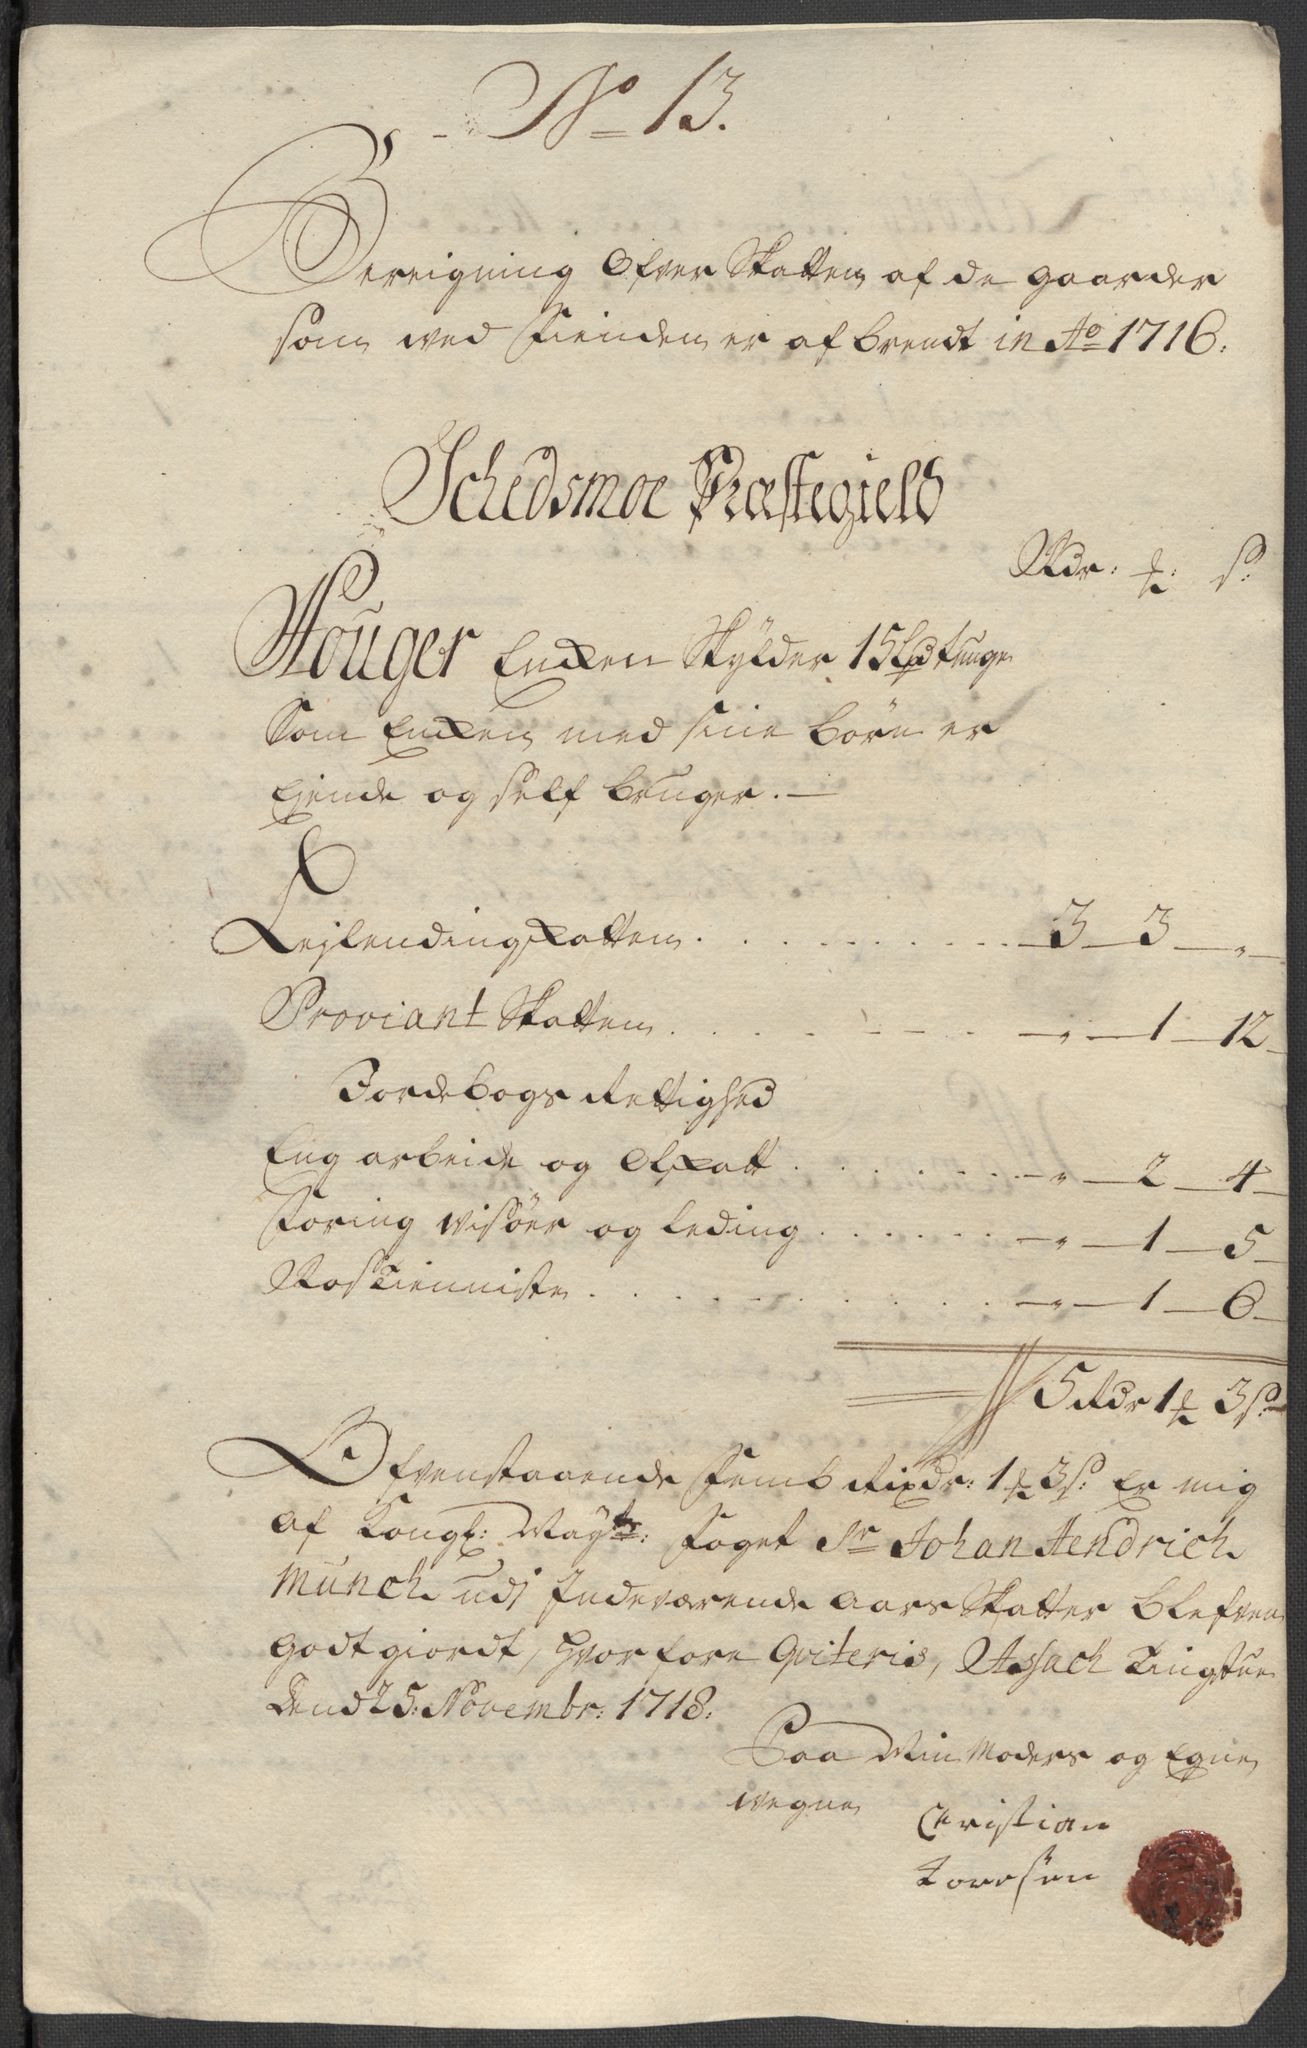 No 13.
Bereigning Ofver Skatten af de gaarder
som ved Fienden er af brendt in Ao 1716:
Schedsmoe Præstegield
Rdr: ꝑ: s:
Houger Enchen Skylder 15 Lpd tunge
Som Enchen med sine børn er
Ejende og self bruger. —
Lejlendingskatten . . . . 3 — 3 — „ —
Proviant Skatten . . . . „ — 1 — 12 —
Jordebogs Rettighed
Eng arbeide og Olskatt . . . . „ — 2 — 4 —
Foring visöer og leding . . . . „ — 1 — 5 —
Rostienniste . . . . „ — 1 — 6 —
5 Rdr 1 ꝑ 3 s:
Ofvenstaaende Femb Rixdr: 1 ꝑ 3 s: Er mig
af Kongl: Mayts: Foget Sr Johan Hendrich
Münch udj Indeværende Aars Skatter blefven
godtgiordt, hvorfore Qviteris, Asach Tingstue
Dend 25: Novembr: 1718:
Paa Min Moders og Egne
vegne Christian
Toresen